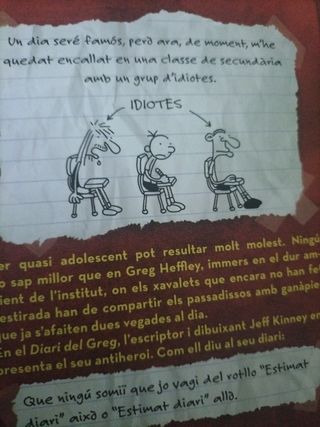 Un dia seré famós, però ara, de moment, m'he
quedat encallat en una classe de secundària
amb un grup d'idiotes.
IDIOTES
er quasi adolescent pot resultar molt molest. Ningú
o sap millor que en Greg Heffley, immers en el dur am-
ient de l'institut, on els xavalets que encara no han fet
estirada han de compartir els passadissos amb ganàpies
que ja s'afaiten dues vegades al dia.
En el Diari del Greg, l'escriptor i dibuixant Jeff Kinney en
presenta el seu antiheroi. Com ell diu al seu diari:
Que ningú somiï que jo vagi del rotllo "Estimat
diari" això o "Estimat diari" allò.